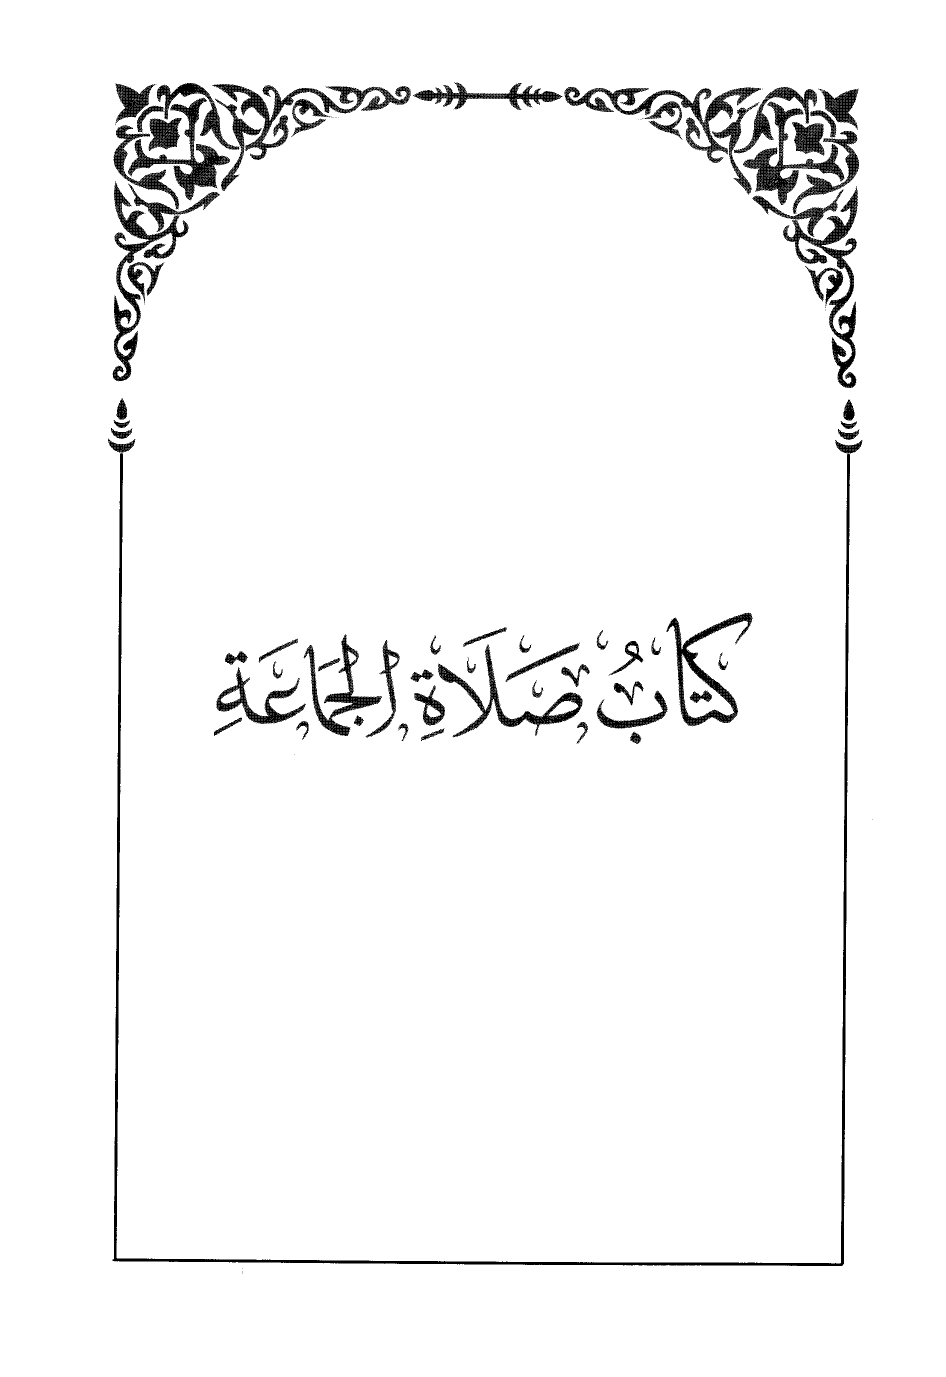 كتابُ صَلَاةِ الجَمَاعَةِ